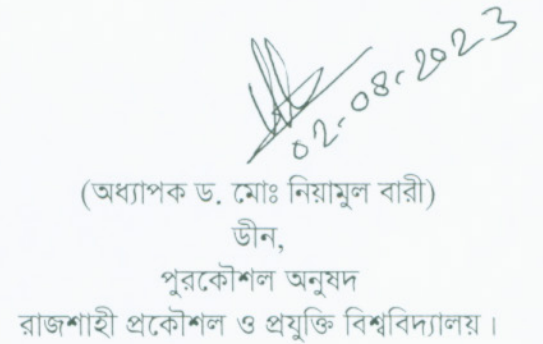 02-08-2023
(অধ্যাপক ড. মোঃ নিয়ামুল বারী)
ডীন,
পুরকৌশল অনুষদ
রাজশাহী প্রকৌশল ও প্রযুক্তি বিশ্ববিদ্যালয়।